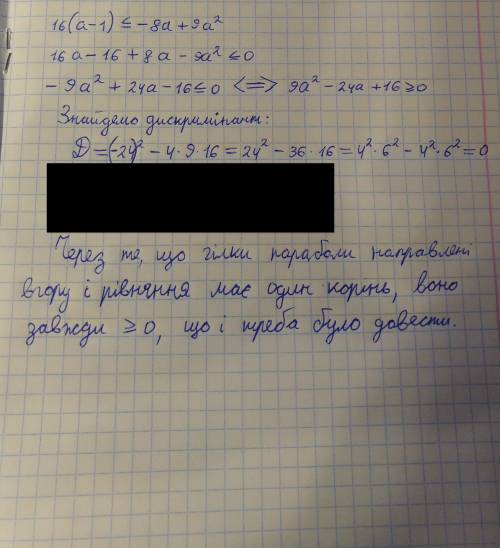 16(a-1) ≤ -8a + 9a²
16a - 16 + 8a - 9a² ≤ 0
- 9a² + 24a - 16 ≤ 0 <=> 9a² - 24a + 16 ≥ 0
Знайдемо дискримінант:
D = (-24)² - 4·9·16 = 24² - 36·16 = 4²·6² - 4²·6² = 0
Через те, що гілки параболи направлені
вгору і рівняння має один корінь, воно
завжди ≥ 0, що і треба було довести.